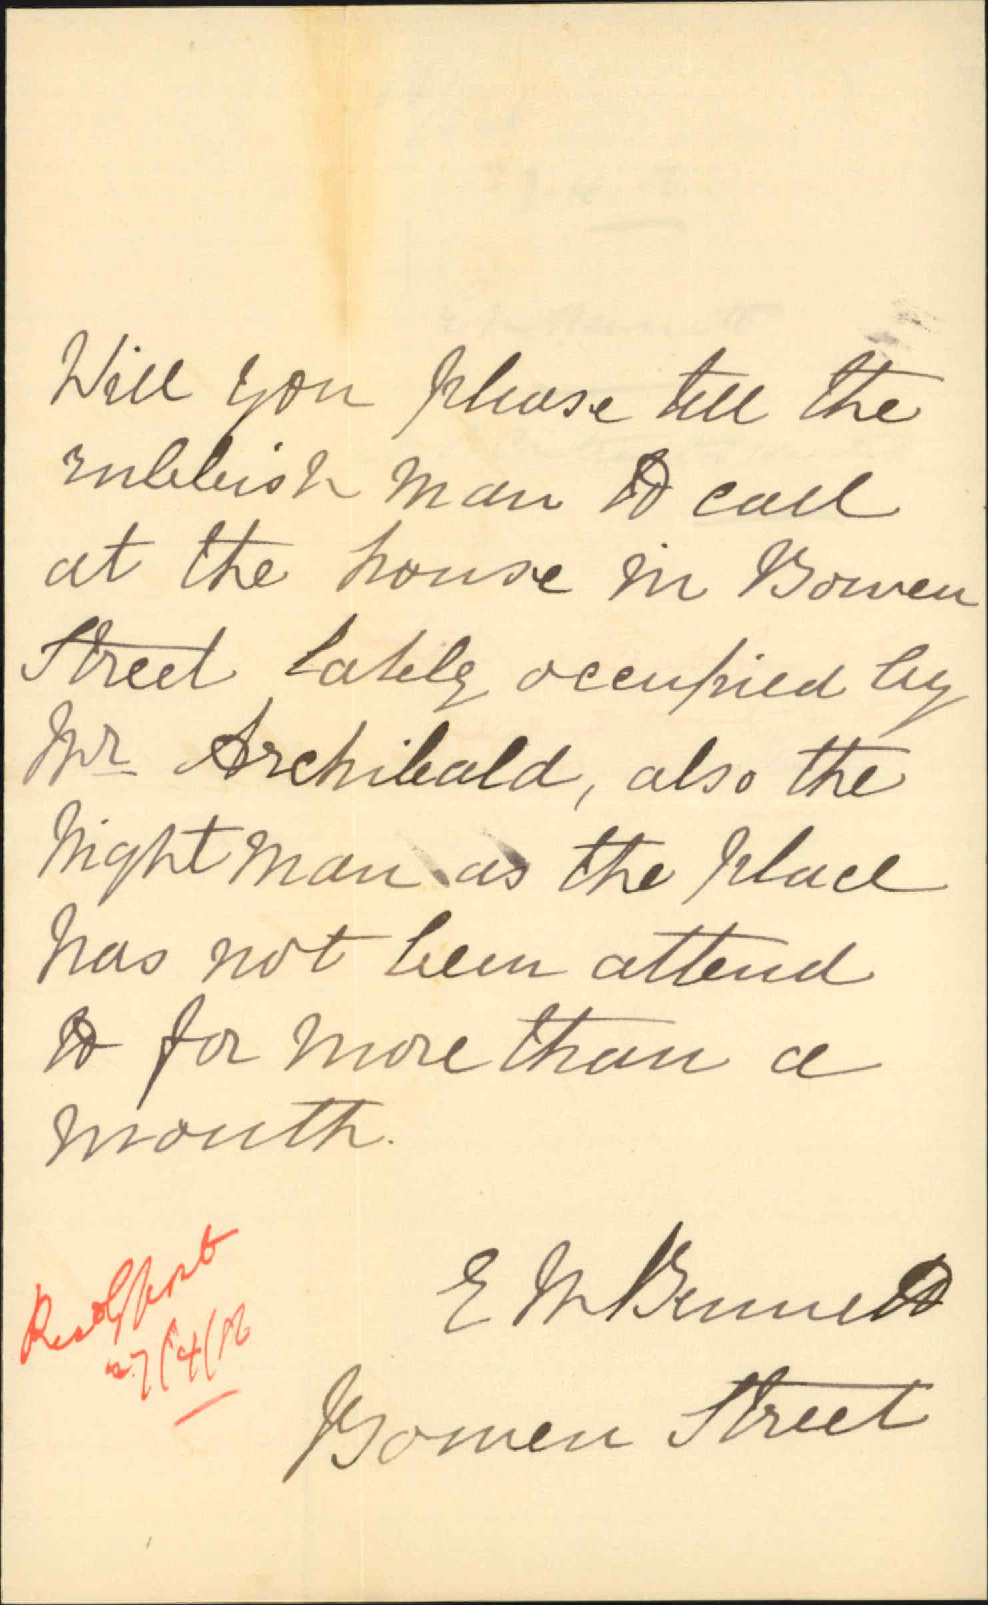 Will you please tell the
rubbish man to call
at the house in Bowen
Street lately occupied by
Mr Archibald, also the
night man as the place
has not been attend
to for more than a
month.
E M Bennett
Bowen Street
27/4/